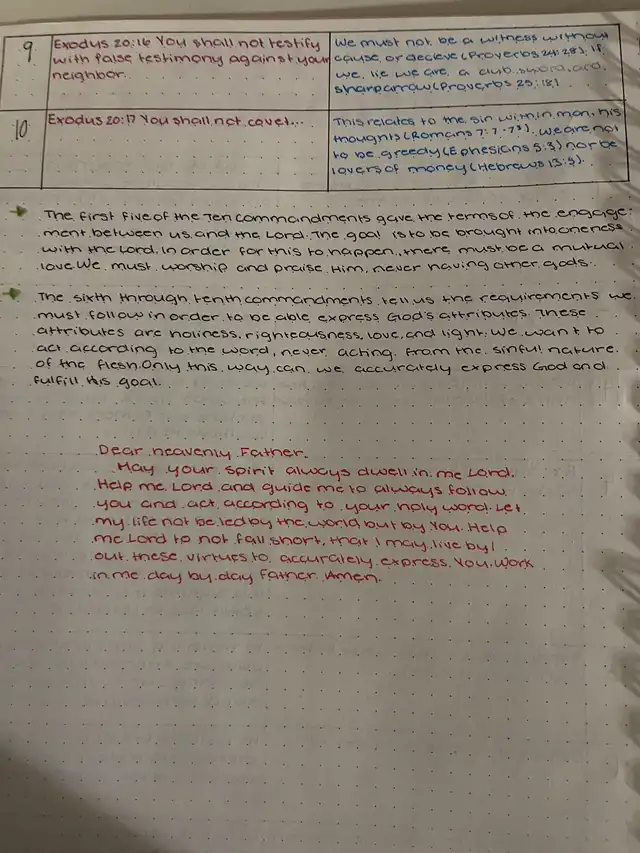 9
Exodus 20:16 You shall not testify
with false testimony against your
neighbor.
We must not be a witness without
cause, or decieve (Proverbs 24:28). If
we lie we are a club, sword, and
sharp arrow (Proverbs 25:18)
10
Exodus 20:17 You shall not covet...
This relates to the sin within man, his
thoughts (Romans 7:7-). We are not
to be greedy (Ephesians 5:3) nor be
lovers of money (Hebrews 13:5).
The first five of the Ten commandments gave the terms of the engage-
ment between us and the Lord. The goal is to be brought into oneness
with the Lord. In order for this to happen, there must be a mutual
love. We must worship and praise Him, never having other gods.
The sixth through tenth commandments tell us the requirements we
must follow in order to be able express God's attributes. These
attributes are holiness, righteousness, love, and light. We want to
act according to the word, never acting from the sinful nature
of the flesh. Only this way can we accurately express God and
fulfill His goal.
Dear heavenly Father,
May your spirit always dwell in me Lord.
Help me Lord and guide me to always follow
you and act according to your holy word. Let
my life not be led by the world but by You. Help
me Lord to not fall short, that I may live by/
out these virtues to accurately express You. Work
in me day by day Father. Amen.